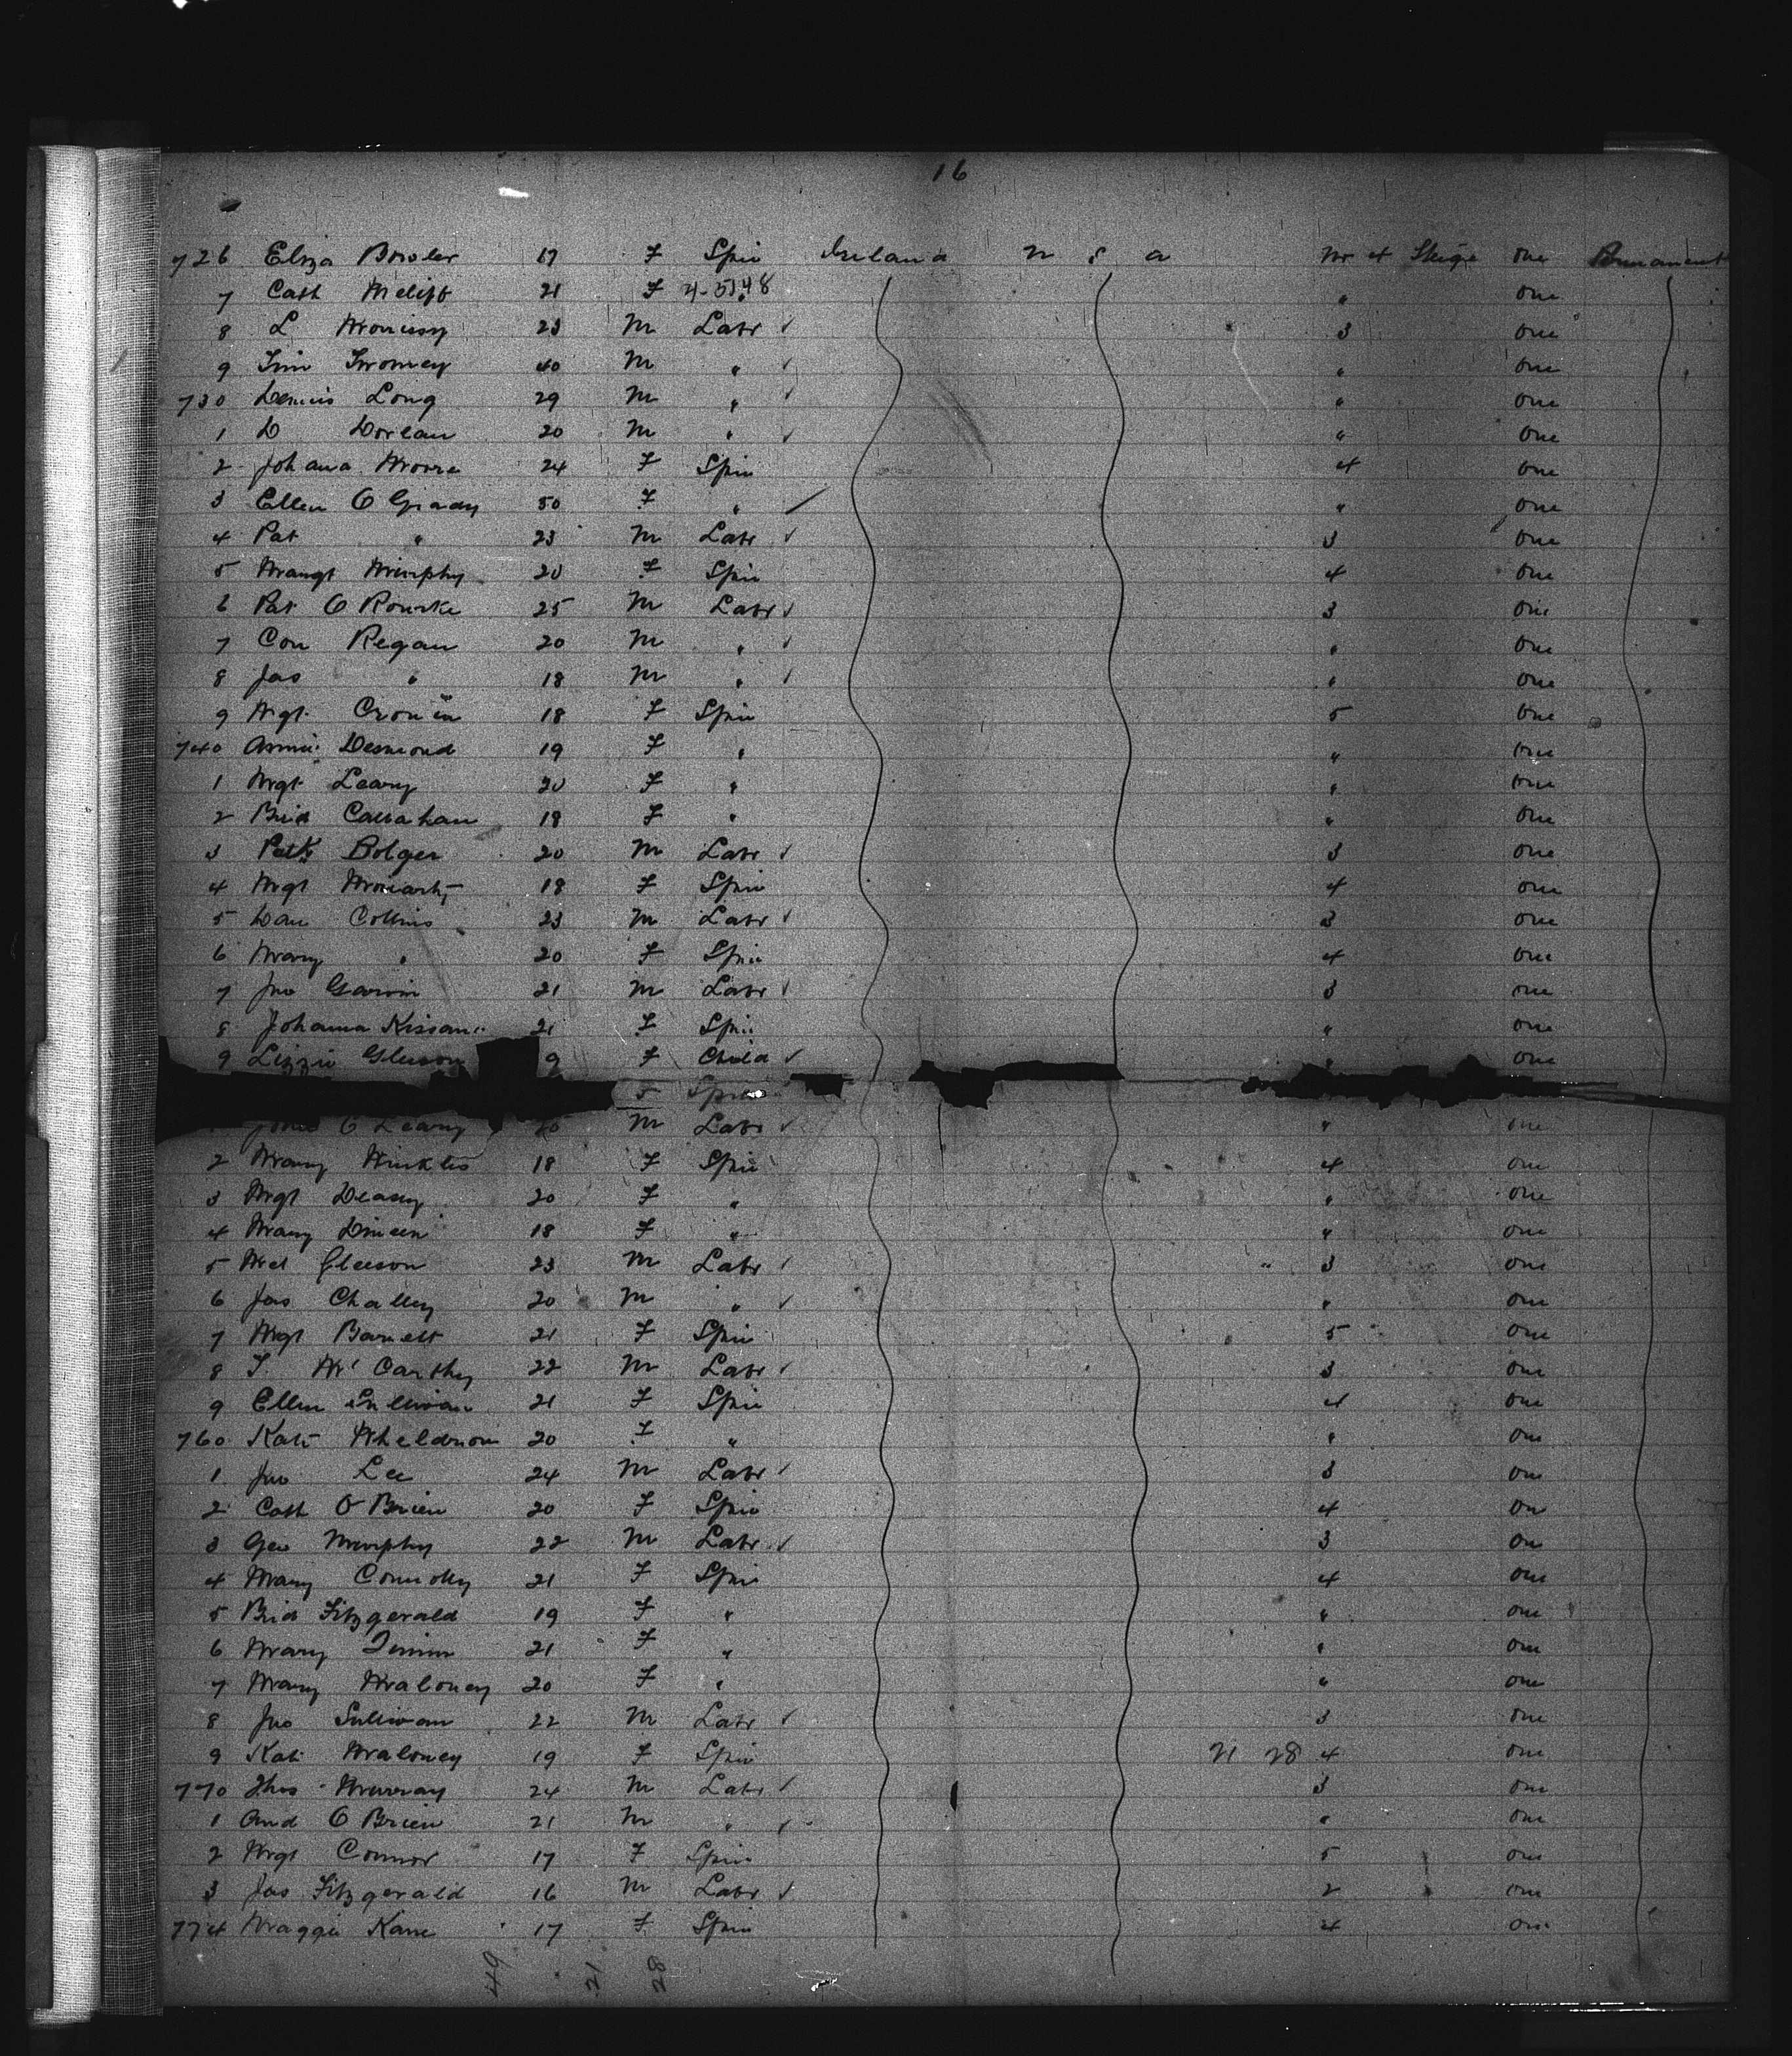 16
726 Eliza Bowler 17 F Spin Ireland U S A No 4 Steige One Permanent
7 Cath 21 F 4-5148 " One
8 L Morrissy 23 M Labr ✓ 3 One
9 Tim Twomey 40 M " ✓ " One
730 Dennis Long 29 M " ✓ " One
1 D Dorlan 20 M " ✓ " One
2 Johana Moore 24 F Spin 4 One
3 Ellen O Grady 50 F " " One
4 Pat " 23 M Labr ✓ 3 One
5 Margt Murphy 20 F Spin 4 One
6 Pat O Rourke 25 M Labr ✓ 3 One
7 Con Regan 20 M " ✓ " One
8 Jas " 18 M " ✓ " One
9 Mgt Cronin 18 F Spin 5 One
740 Annie Desmond 19 F " " One
1 Mgt Leary 20 F " " One
2 Brid Callahan 18 F " " One
3 Patk Bolger 20 M Labr ✓ 3 One
4 Mgt Moriarty 18 F Spin 4 One
5 Dan Collins 23 M Labr ✓ 3 One
6 Mary " 20 F Spin 4 One
7 Jno Garvin 21 M Labr ✓ 3 One
8 Johanna Kissane 21 F Spin " One
9 Lizzie Gleeson 9 F Child ✓ " One
Spin
O Leary M Labr ✓ " One
2 Mary 18 F Spin 4 One
3 Mgt Deasy 20 F " " One
4 Mary Dineen 18 F " " One
5 Mcl Gleeson 23 M Labr ✓ " 3 One
6 Jas Challey 20 M " ✓ " One
7 Mgt Barrett 21 F Spin 5 One
8 T McCarthy 22 M Labr ✓ 3 One
9 Ellen Sullivan 21 F Spin 4 One
760 Kate Wheldrion 20 F " " One
1 Jno Lee 24 M Labr ✓ 3 One
2 Cath O Brien 20 F Spin 4 One
3 Geo Murphy 22 M Labr ✓ 3 One
4 Mary Connolly 21 F Spin 4 One
5 Brid Fitzgerald 19 F " " One
6 Mary 21 F " " One
7 Mary Maloney 20 F " " One
8 Jno Sullivan 22 M Labr ✓ 3 One
9 Kate Maloney 19 F Spin 21 28 4 One
770 Thos Murray 24 M Labr ✓ 3 One
1 And O Brien 21 M " ✓ " One
2 Mgt Connor 17 F Spin 5 One
3 Jas Fitzgerald 16 M Labr ✓ 2 One
774 Maggie Kane 17 F Spin 4 One
49 21 28